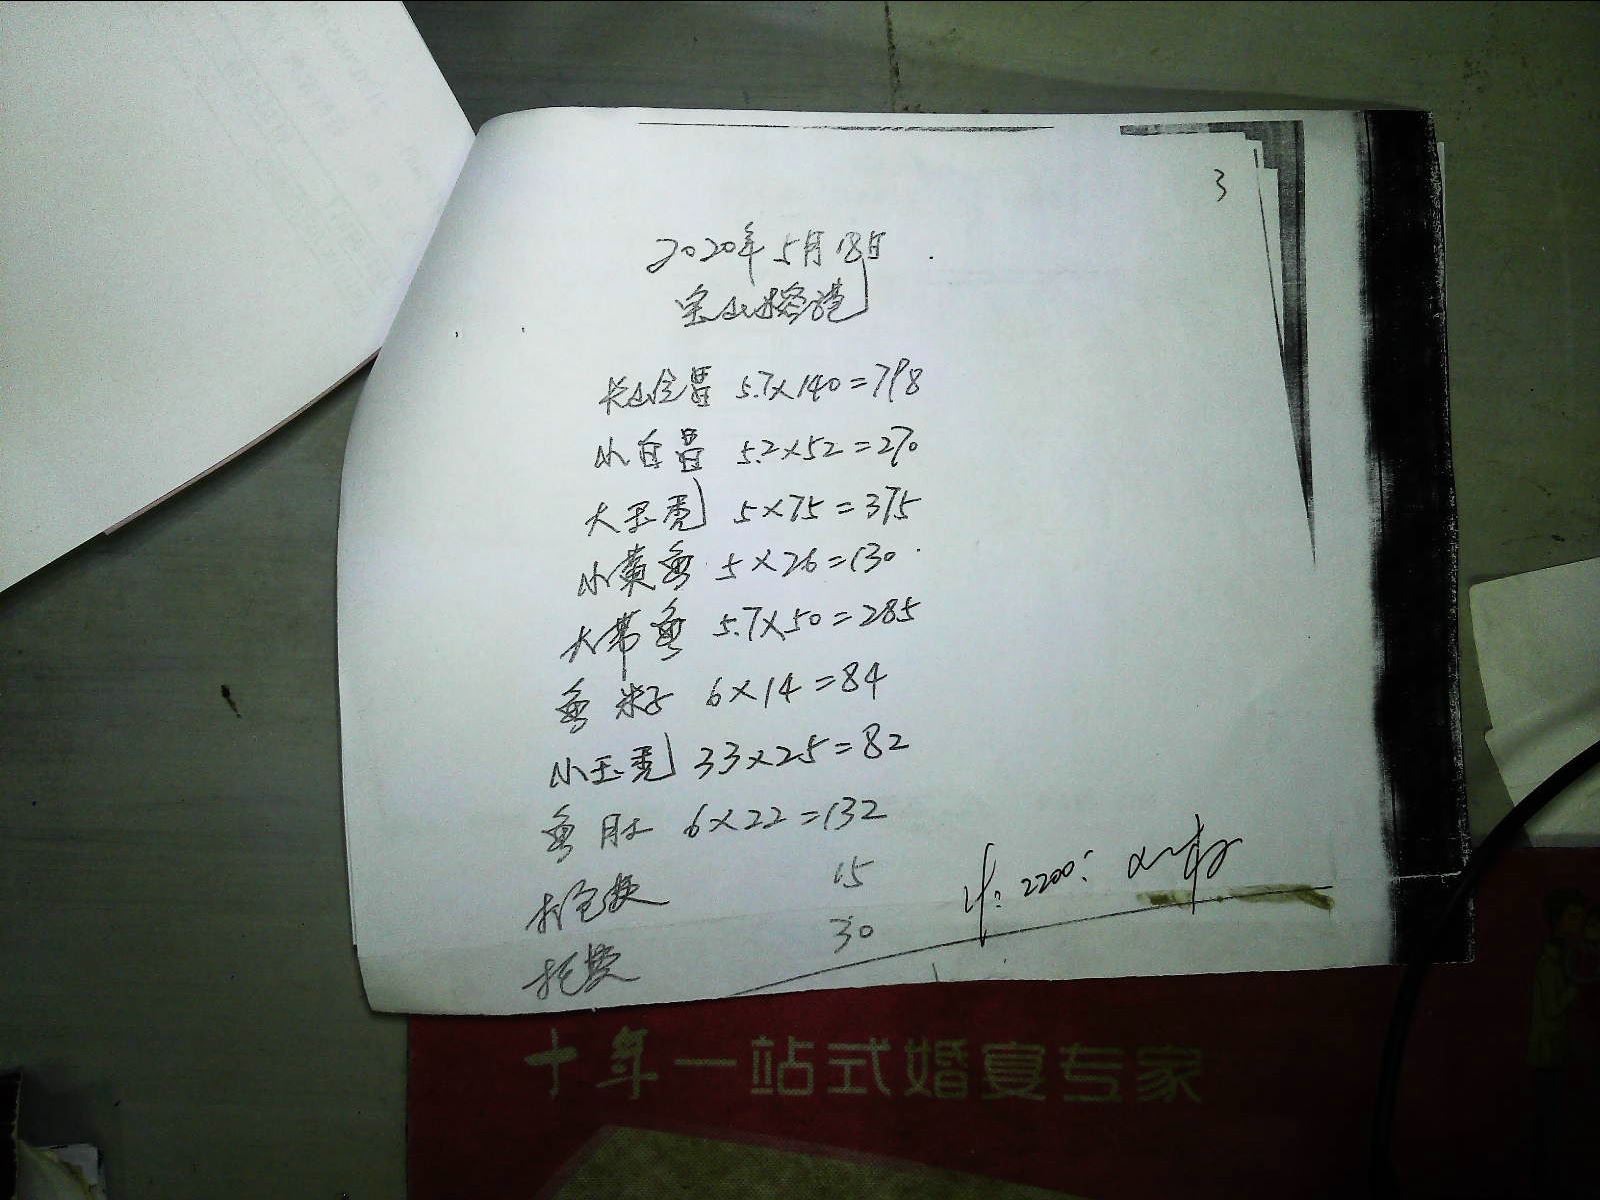 3
2020年5月18日
宝山榕港
长山仓昌 5.7×140=798
小白昌 5.2×52=270
大玉秃 5×75=375
小黄鱼 5×26=130
大带鱼 5.7×50=285
鱼米子 6×14=84
小玉秃 33×25=82
鱼肚 6×22=132
打仓费 15
托费 30
计:2200:
十年一站式婚宴专家